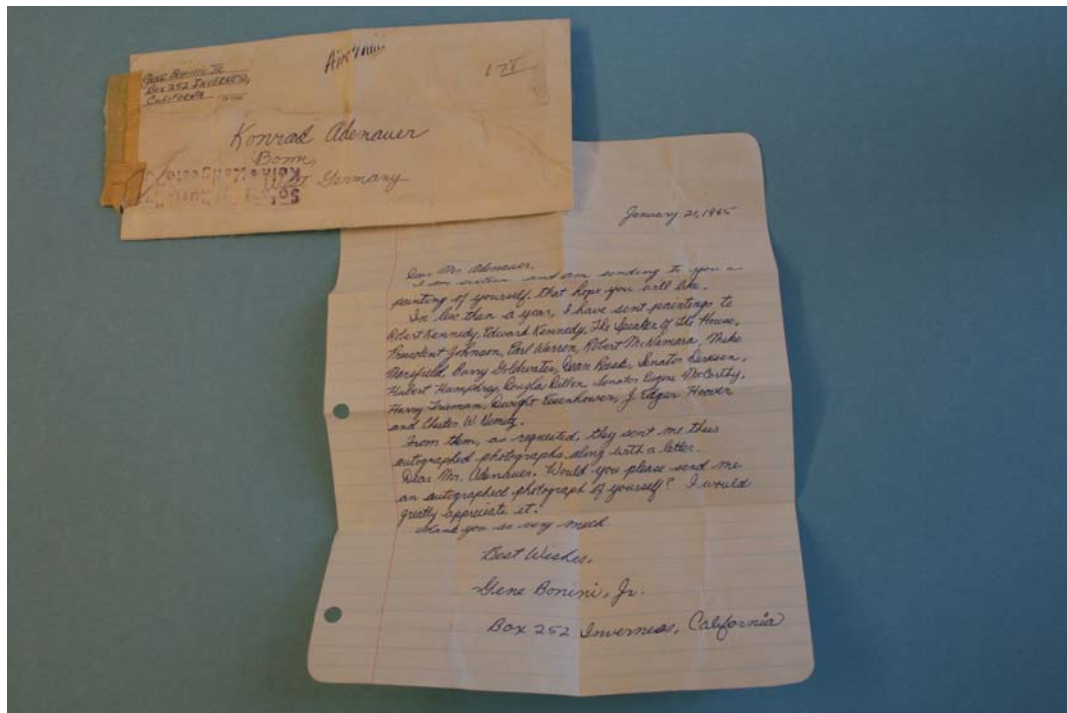 Gene Bonini Jr.
Box 252 Inverness,
California
Air Mail
Konrad Adenauer
Bonn,
West Germany
January 21, 1965
Dear Mr. Adenauer,
I am sixteen and am sending to you a
painting of yourself, that hope you will like.
In less than a year, I have sent paintings to
Robert Kennedy, Edward Kennedy, The Speaker of the House,
President Johnson, Earl Warren, Robert McNamara, Mike
Mansfield, Barry Goldwater, Dean Rusk, Senator Dirksen,
Hubert Humphrey, Douglas Dillon, Senator Eugene McCarthy,
Harry Truman, Dwight Eisenhower, J. Edgar Hoover,
and Chester W. Nimitz.
From them, as requested, they sent me their
autographed photographs along with a letter.
Dear Mr. Adenauer. Would you please send me
an autographed photograph of yourself? I would
greatly appreciate it.
Thank you so very much
Best Wishes,
Gene Bonini, Jr.
Box 252 Inverness, California